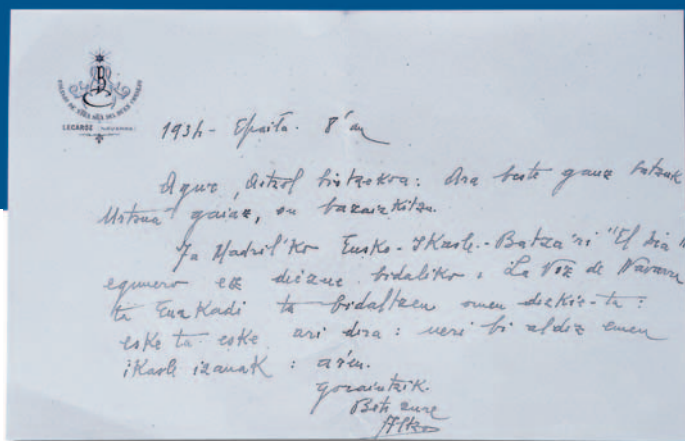 COLEGIO DE NTRA SRA DEL BUEN CONSEJO
B
LECAROZ (NAVARRA)
1934 - Epaila. 8'an
Agur, Aitzol biotzekoa: Ara beste gauz batzuk
Urtzua' gaiaz, on bazaizkitzu.
Ja Madril'ko Eusko-Ikasle-Batza'ri "El Dia"
egunero ez diezue bidaliko: La Voz de Navarra
ta Euzkadi ta bidaltzen omen dizkie-ta:
eske ta eske ari dira: neri bi aldiz emen
ikasle izanak: arren.
goraintzik.
Beti zure